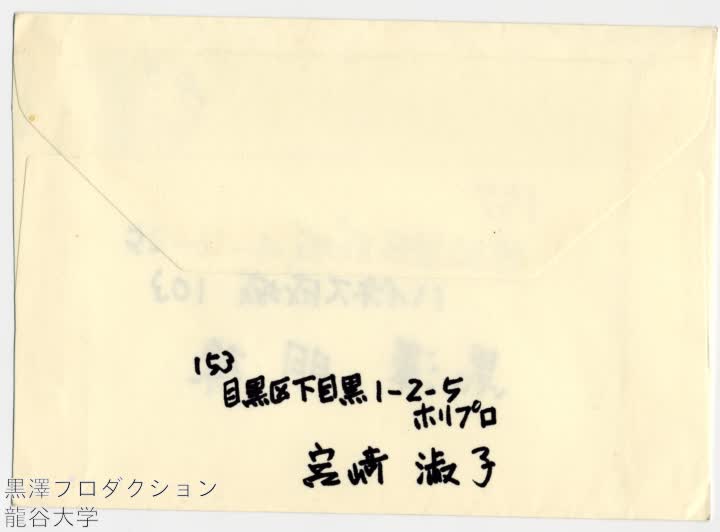 153
目黒区下目黒1-2-5
ホリプロ
宮崎 淑子
黒澤プロダクション
龍谷大学